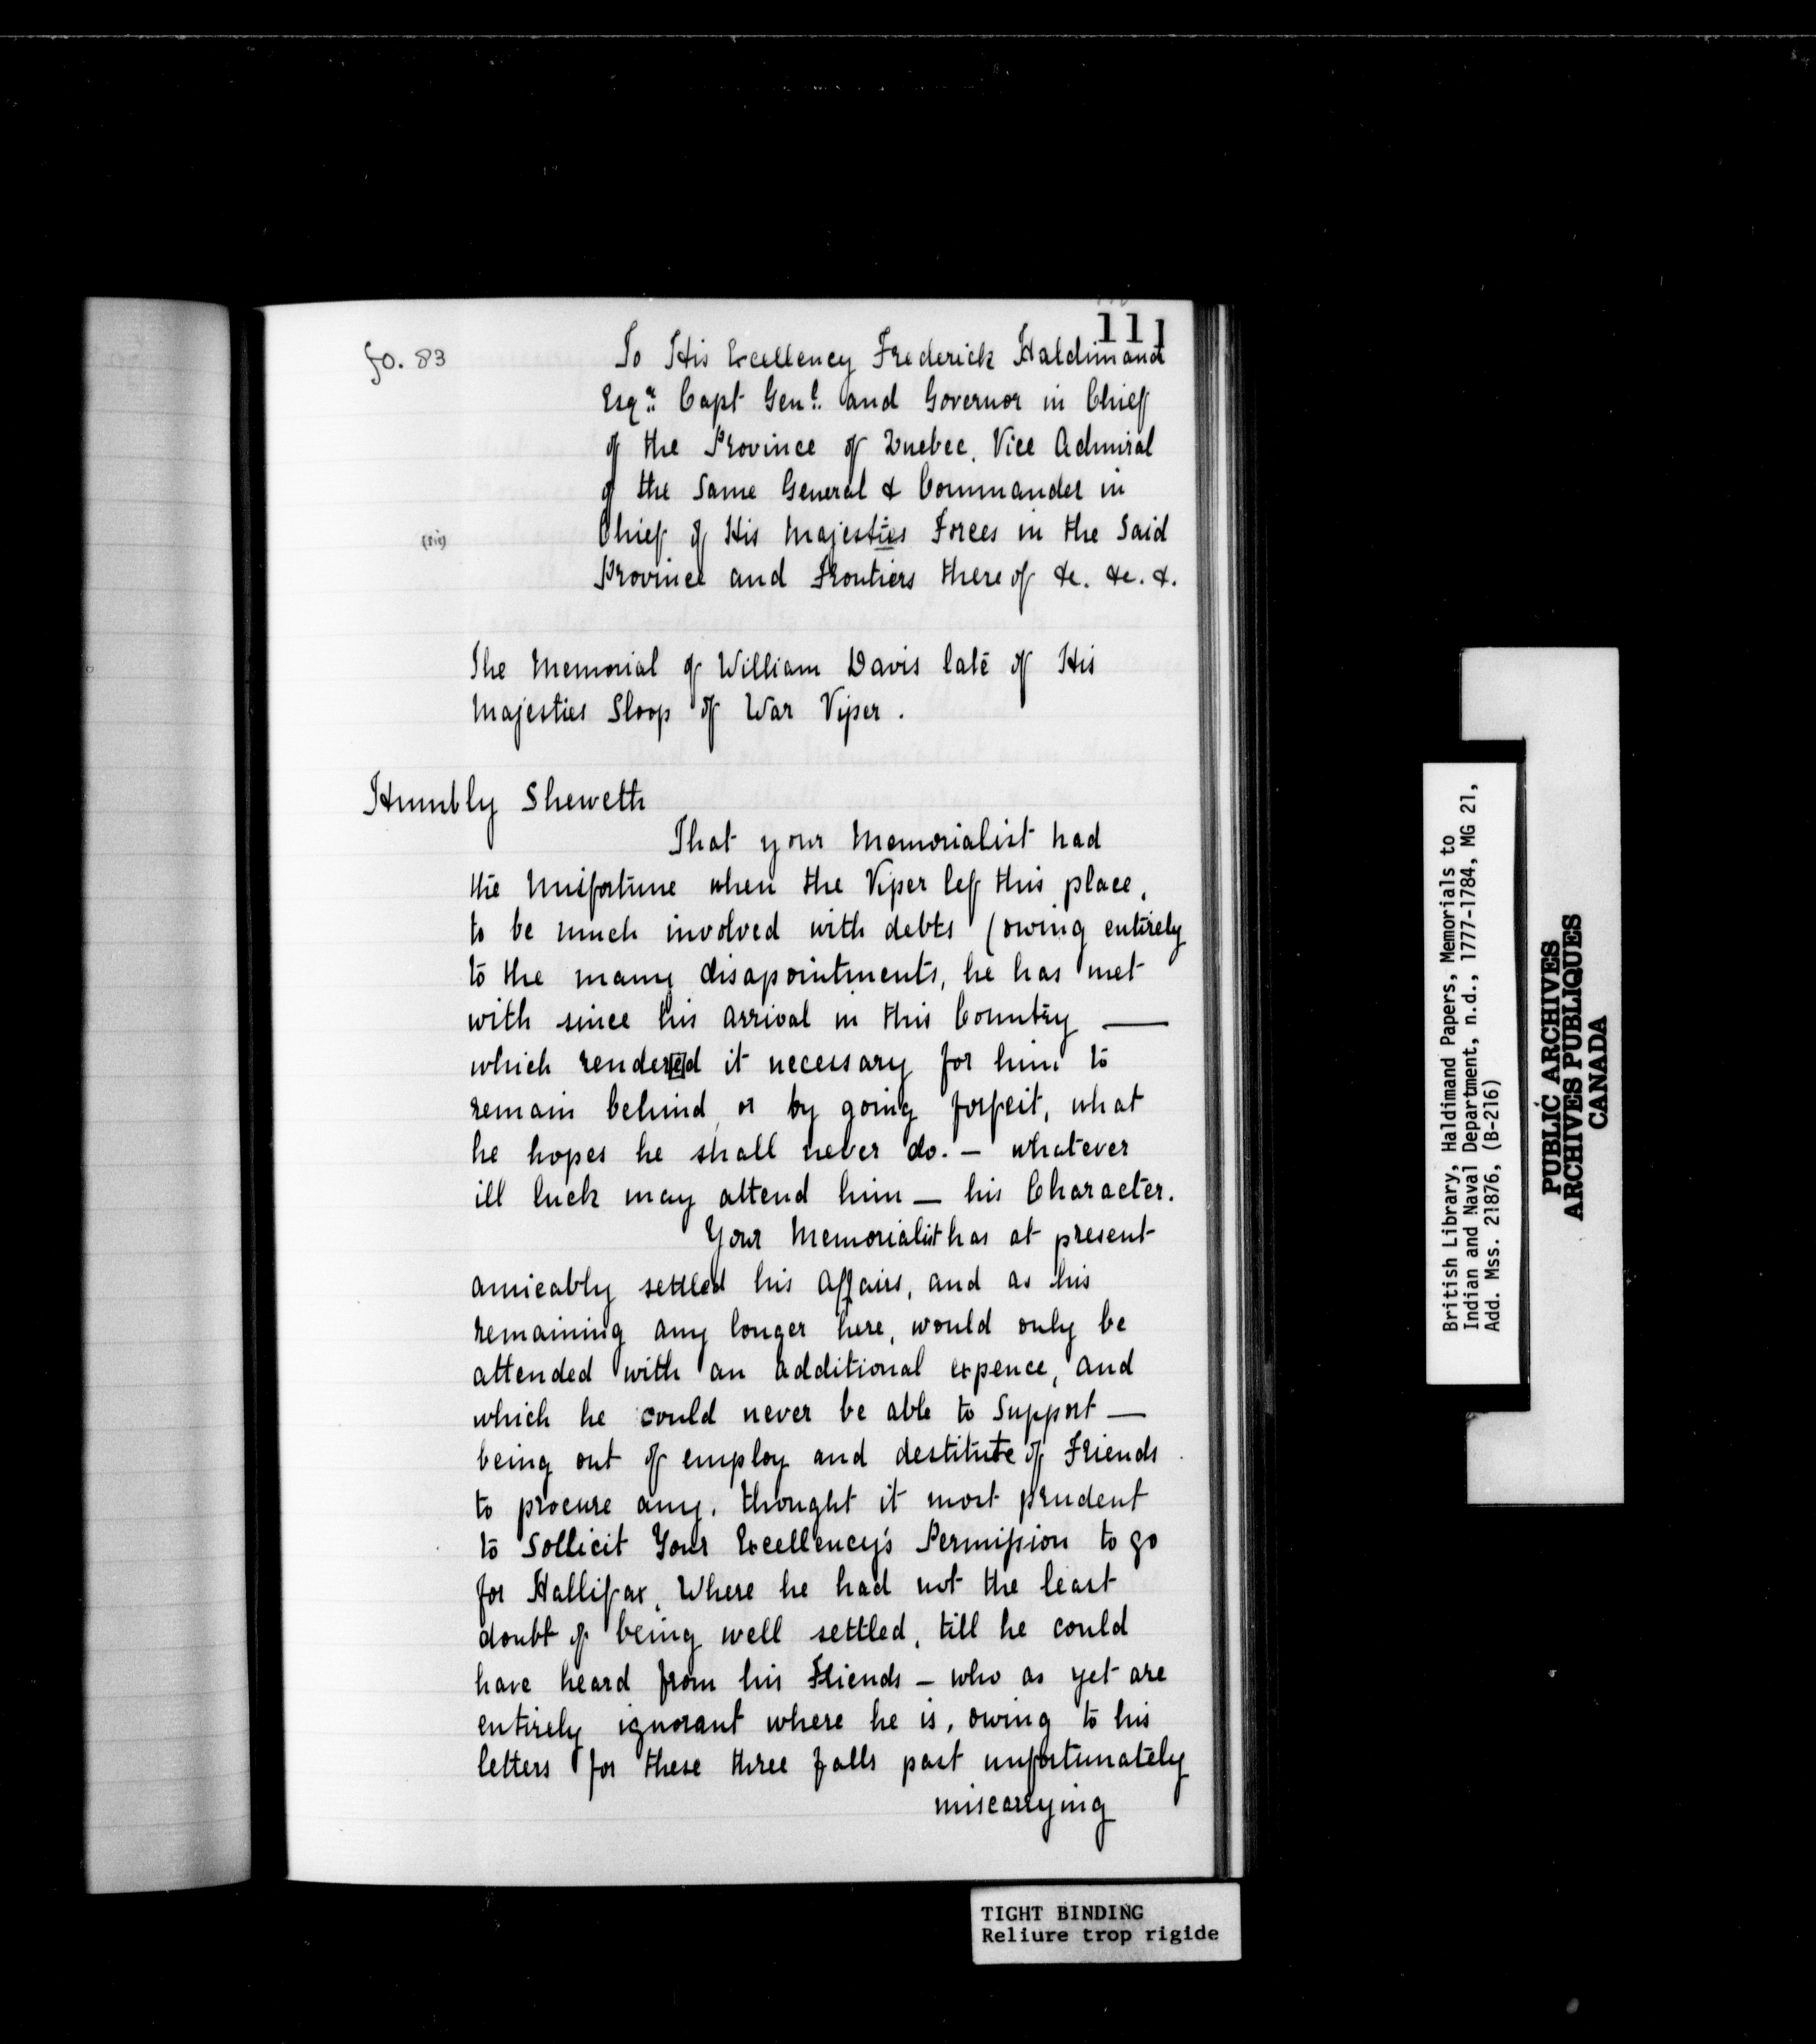 111
fo. 83
To His Excellency Frederick Haldimand
Esqr. Capt Genl. and Governor in Chief
of the Province of Quebec, Vice Admiral
of the Same General & Commander in
(sic)
Chief of His Majesties Forces in the Said
Province and Frontiers there of &c. &c. &.
The Memorial of William Davis late of His
Majesties Sloop of War Viper.
Humbly Sheweth
That your Memorialist had
the Misfortune when the Viper lef this place,
to be much involved with debts (owing entirely
to the many disapointments, he has met
with since his arrival in this Country —
which render[e]d it necessary for him to
remain behind, or by going forfeit, what
he hopes he shall never do. — whatever
ill luck may attend him — his Character.
Your Memorialist has at present
amicably settled his Affairs, and as his
remaining any longer here, would only be
attended with an additional expence, and
which he could never be able to Support —
being out of employ and destitute of Friends
to procure any, thought it most prudent
to Sollicit Your Excellency's Permission to go
for Hallifax, Where he had not the least
doubt of being well settled, till he could
have heard from his Friends — who as yet are
entirely ignorant where he is, owing to his
letters for these three falls past unfortunately
miscarrying
British Library, Haldimand Papers, Memorials to
Indian and Naval Department, n.d., 1777-1784, MG 21,
Add. Mss. 21876, (B-216)
PUBLIC ARCHIVES
ARCHIVES PUBLIQUES
CANADA
TIGHT BINDING
Reliure trop rigide